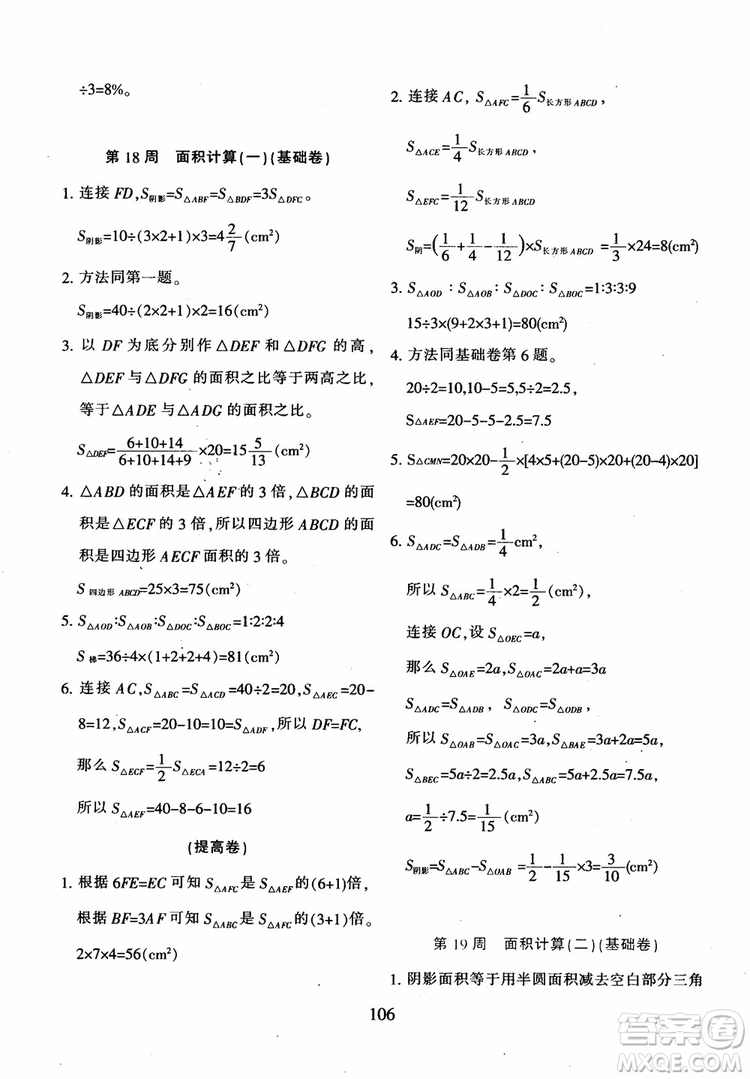 ÷3=8%。
第 18 周　面积计算(一)(基础卷)
1. 连接 FD,S阴影=S△ABF=S△BDF=3S△DFC。
S阴影=10÷(3×2+1)×3=4 2/7 (cm²)
2. 方法同第一题。
S阴影=40÷(2×2+1)×2=16(cm²)
3. 以 DF 为底分别作△DEF 和△DFG 的高,
△DEF 与△DFG 的面积之比等于两高之比,
等于△ADE 与△ADG 的面积之比。
S△DEF=(6+10+14)/(6+10+14+9)×20=15 5/13 (cm²)
4. △ABD 的面积是△AEF 的 3 倍,△BCD 的面
积是△ECF 的 3 倍,所以四边形 ABCD 的面
积是四边形 AECF 面积的 3 倍。
S四边形 ABCD=25×3=75(cm²)
5. S△AOD:S△AOB:S△DOC:S△BOC=1:2:2:4
S梯=36÷4×(1+2+2+4)=81(cm²)
6. 连接 AC,S△ABC=S△ACD=40÷2=20,20-
8=12,S△ACF=20-10=10=S△ADF,所以 DF=FC,
那么 S△ECF=1/2 S△ECA=12÷2=6
所以 S△AEF=40-8-6-10=16
(提高卷)
1. 根据 6FE=EC 可知 S△AFC是 S△AEF的(6+1)倍。
根据 BF=3AF 可知 S△ABC是 S△AFC的(3+1)倍。
2×7×4=56(cm²)
2. 连接 AC, S△AFC=1/6 S长方形 ABCD,
S△ACE=1/4 S长方形 ABCD,
S△EFC=1/12 S长方形 ABCD
S阴=(1/6+1/4-1/12)×S长方形 ABCD=1/3×24=8(cm²)
3. S△AOD：S△AOB：S△DOC：S△BOC=1:3:3:9
15÷3×(9+2×3+1)=80(cm²)
4. 方法同基础卷第 6 题。
20÷2=10,10-5=5,5÷2=2.5
S△AEF=20-5-5-2.5=7.5
5. S△CMN=20×20-1/2×[4×5+(20-5)×20+(20-4)×20]
=80(cm²)
6. S△ADC=S△ADB=1/4(cm²,
所以 S△ABC=1/4×2=1/2(cm²),
连接 OC,设 S△OEC=a,
那么 S△OAE=2a,S△OAC=2a+a=3a
S△ADC=S△ADB ，S△ODC=S△ODB，所以
S△OAB=S△OAC=3a,S△BAE=3a+2a=5a
S△BEC=5a÷2=2.5a,S△ABC=5a+2.5a=7.5a,
a=1/2÷7.5=1/15(cm²)
S阴影=S△ABC-S△OAB=1/2-1/15×3=3/10(cm²)
第 19 周　面积计算(二)(基础卷)
1. 阴影面积等于用半圆面积减去空白部分三角
106
答案圈
MXQE.COM